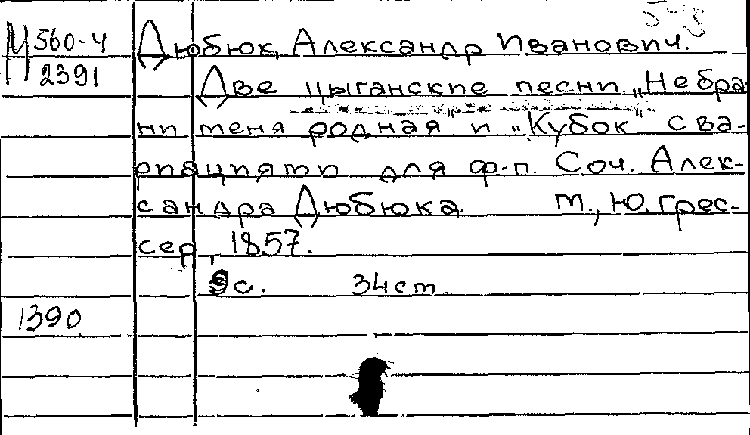 М 560-4
2391
Дюбюк, Александр Иванович.
Две цыганские песни „Не бра
ни меня родная и „Кубок с ва-
риациями для ф-п. Соч. Алек-
сандра Дюбюка. М., Ю. Грес-
сер, 1857.
9с. 34cm
1390